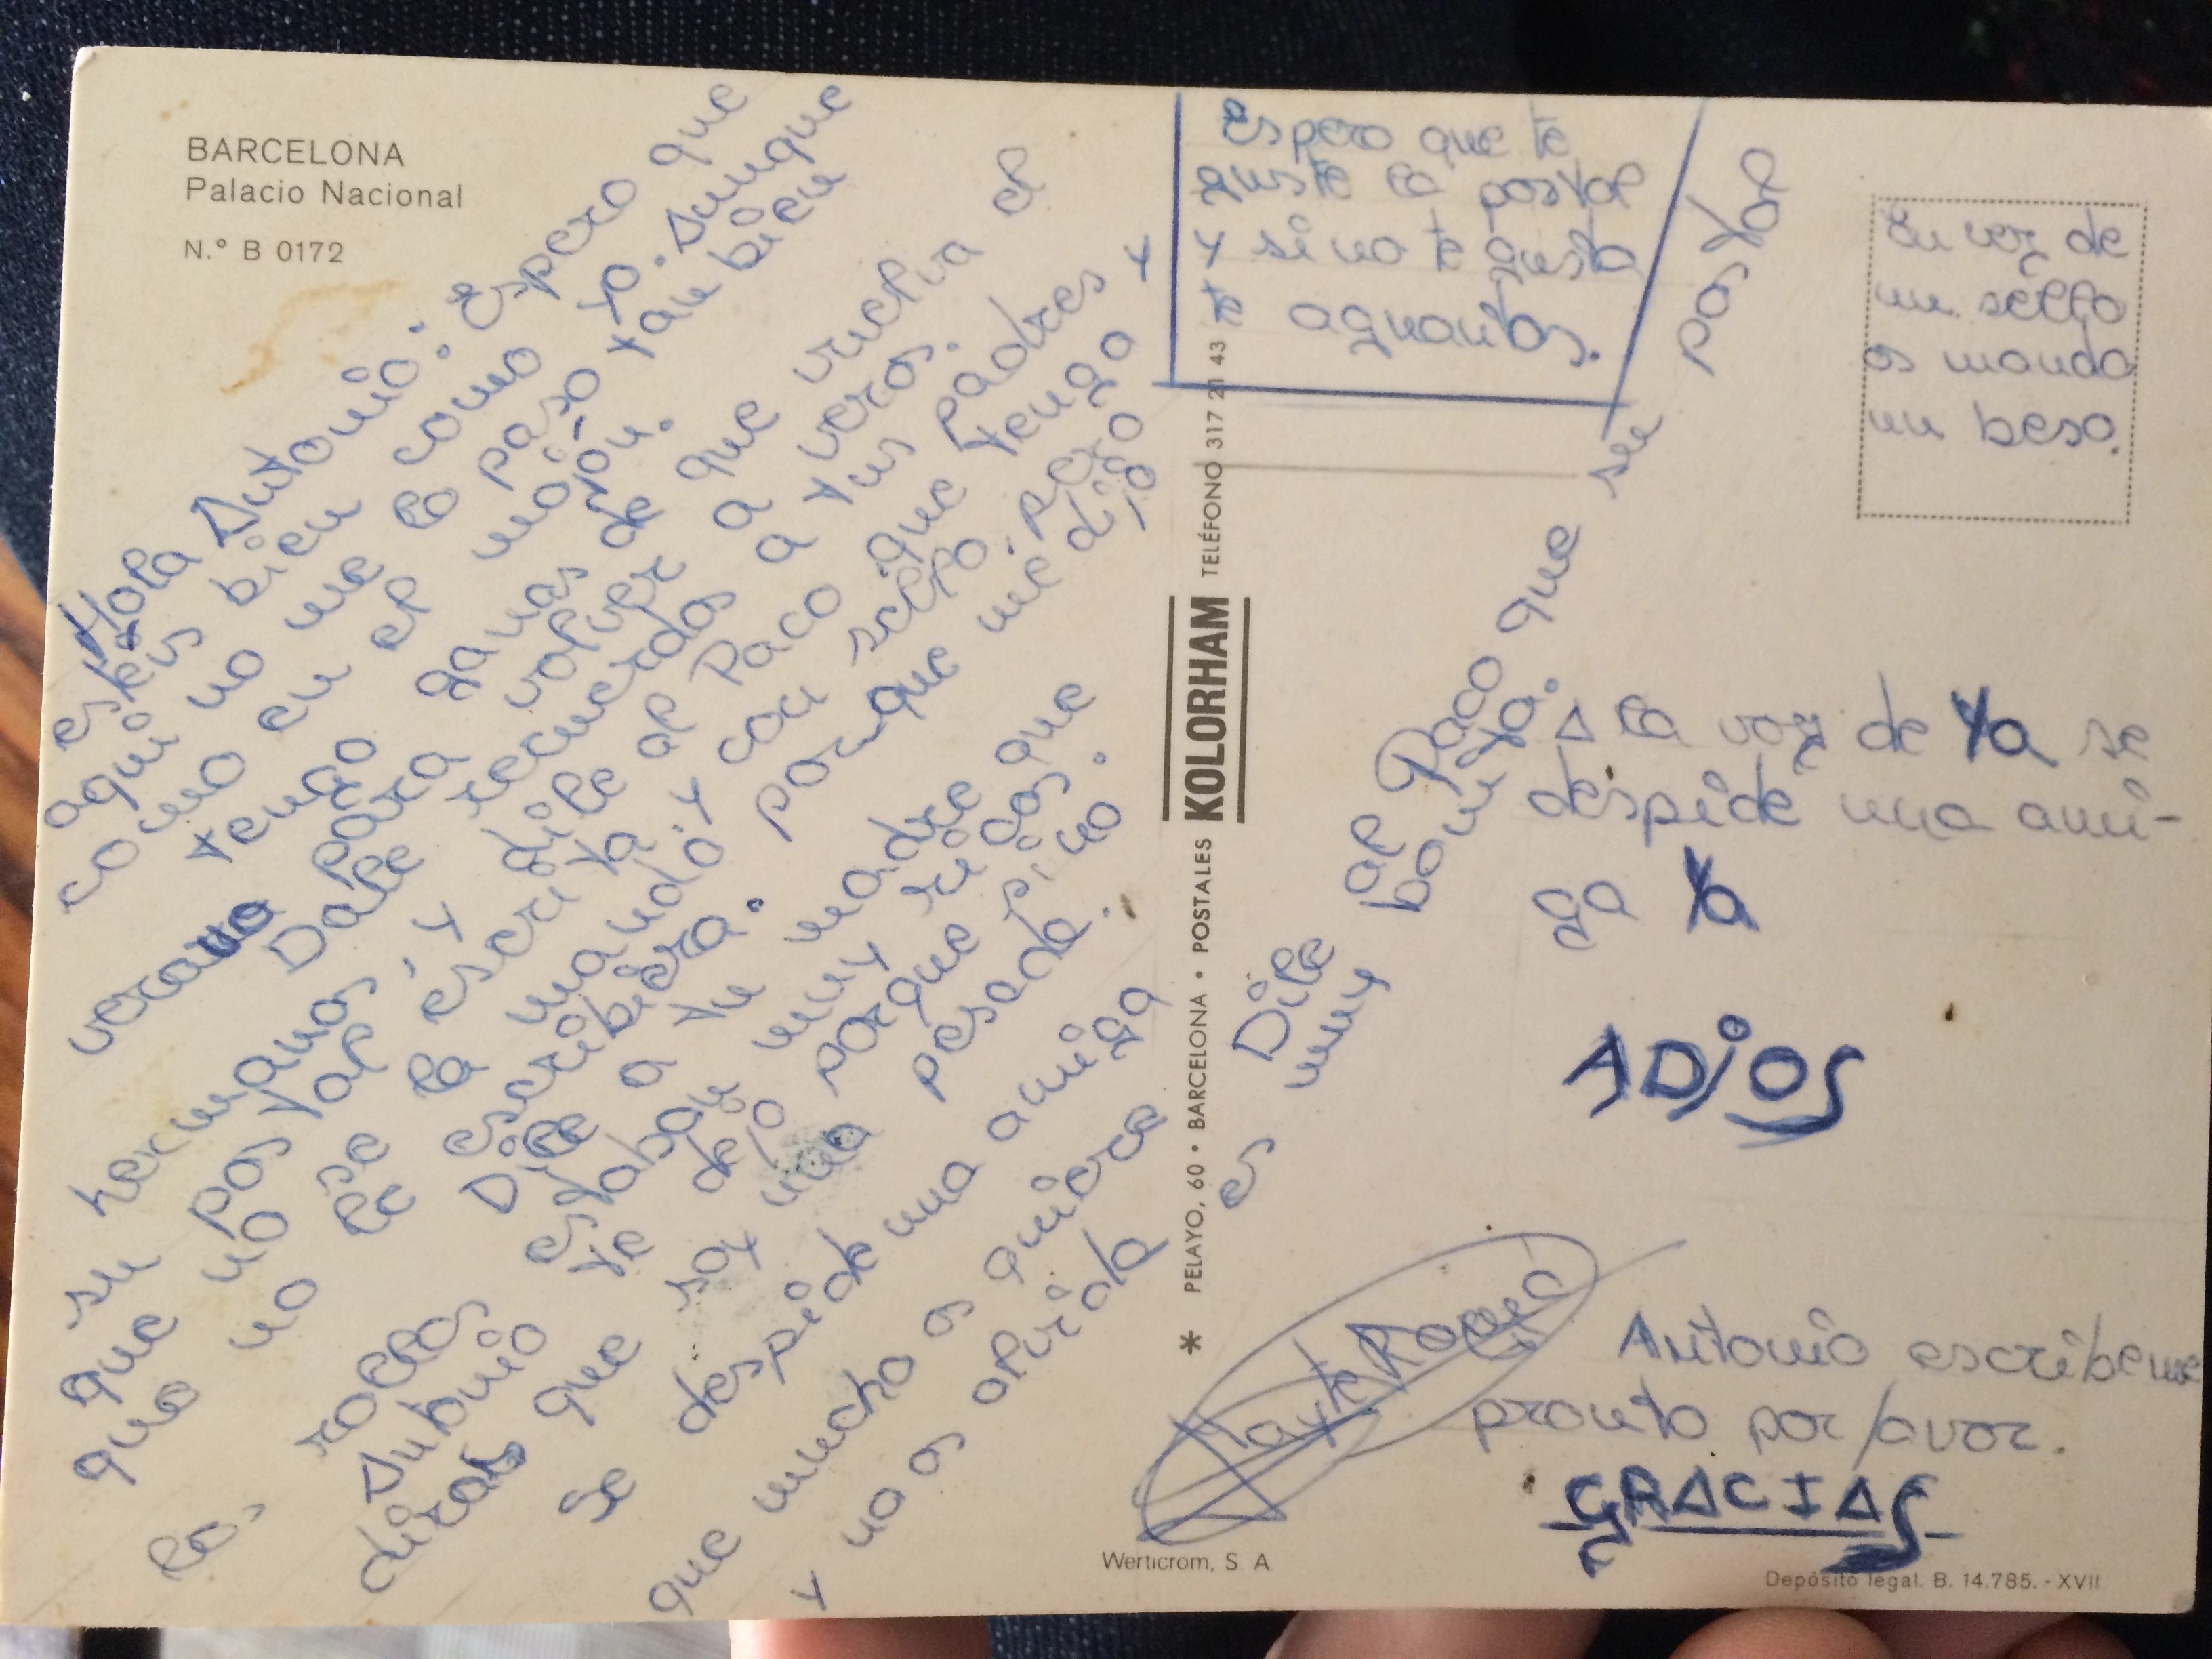 BARCELONA
Palacio Nacional
N.º B 0172
Hola Antonio: Espero que
estés bien como yo. Aunque
aquí no me lo paso tan bien
como en el moñon.
tengo ganas de que vuelva el
verano para volver a veros.
Dale recuerdos a tus padres y
su hermanos, y dile al Paco que tenga
que no postal escrita y con sello. pero
que no se la mandó porque me dijo
no le escribiera.
Dile a tu madre que
los rollos estaban muy ricos.
Antonio te dejo porque sino
dirás que soy una pesada.
Se despide una amiga
que mucho os quiere
y no os olvida
Espero que te
guste la postal
y si no te gusta
te aguantas.
En vez de
un sello
os mando
un beso.
Dile al Paco que su postal
es muy bonita.
A la voz de Ya se
despide una ami-
ga Ya
ADiOS
Antonio escribeme
pronto por favor.
GRACIAS
* PELAYO, 60 • BARCELONA • POSTALES KOLORHAM TELÉFONO 317 21 43
Werticrom, S A
Depósito legal. B. 14.785. - XVII